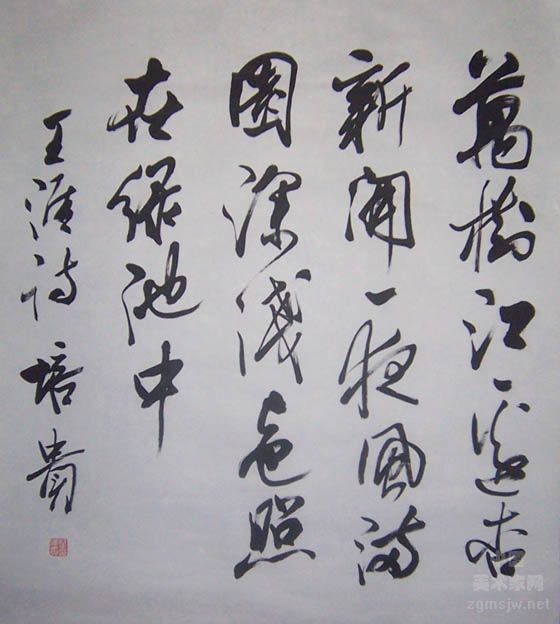 萬樹江邊杏
新開一夜風滿
園深淺色照
在綠池中
王涯詩 培貴
美术家网
zgmsjw.net